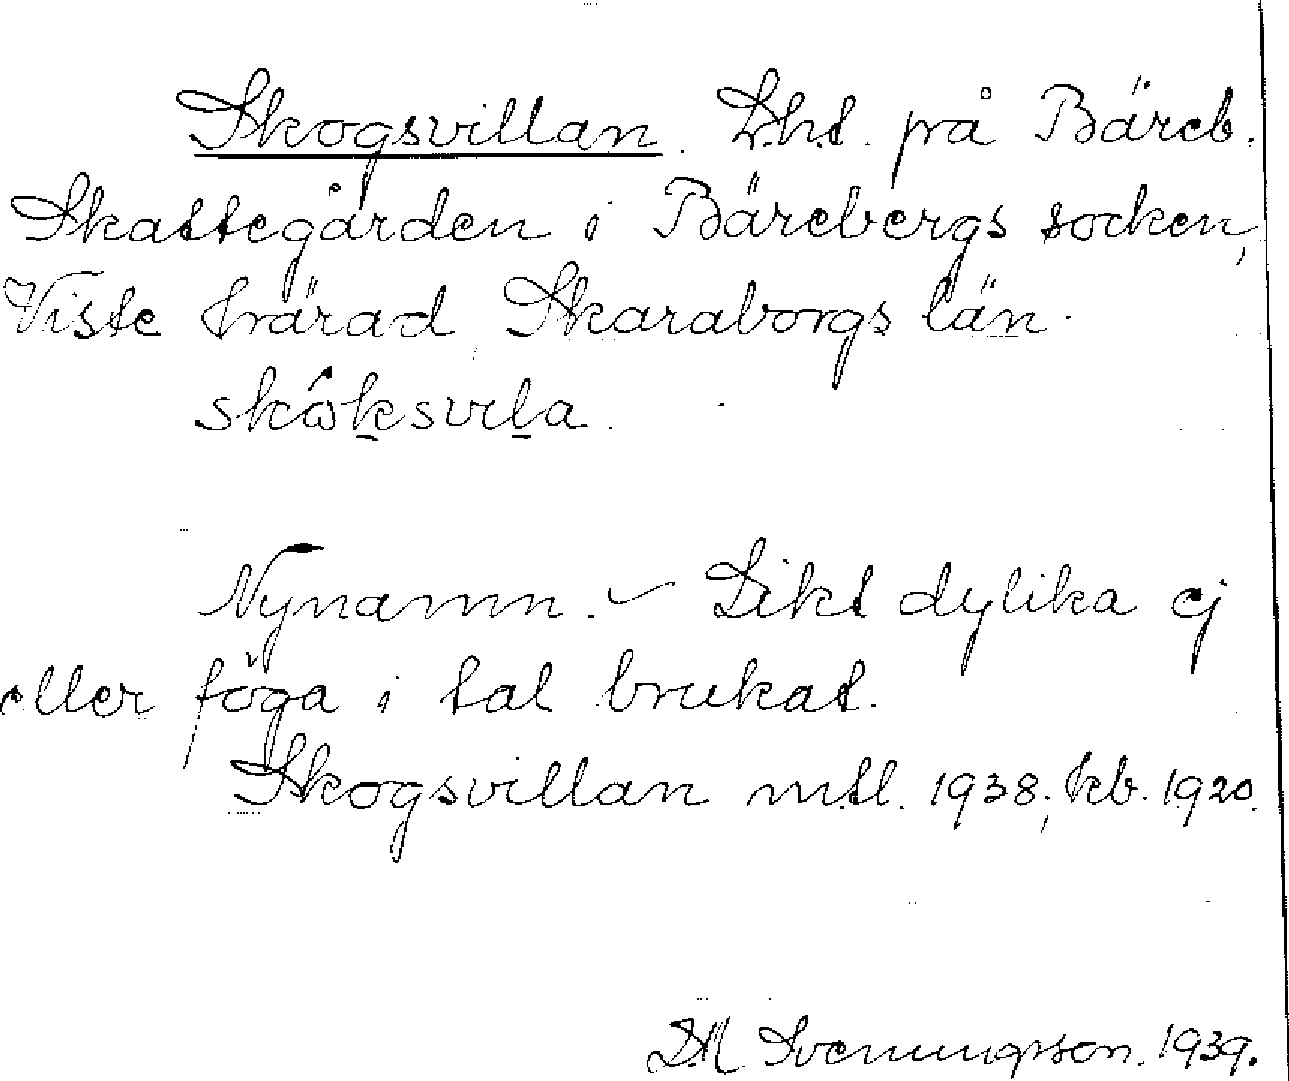 Skogsvillan. Lht. på Bäreb.
Skattegården i Bärebergs socken,
Viste härad, Skaraborgs län.
skôk̲svil̲a.
Nynamn. – Likt dylika ej
eller föga i tal brukat.
Skogsvillan mtl. 1938; kb. 1920.
Svenungsson. 1939.